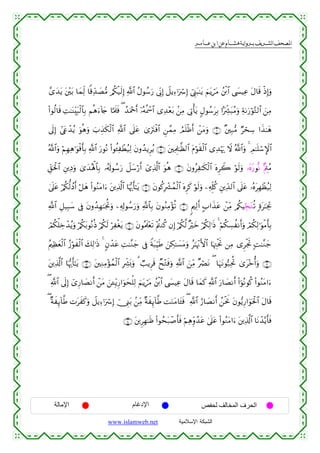 المصحف الشريف برواية هشام عن ابن عامر
وَإِذْ قَالَ عِيسَى ٱبْنُ مَرْيَمَ يَٰبَنِىٓ إِسْرَٰٓءِيلَ إِنِّى رَسُولُ ٱللَّهِ إِلَيْكُم مُّصَدِّقًا لِّمَا بَيْنَ يَدَىَّ
مِنَ ٱلتَّوْرَىٰةِ وَمُبَشِّرًۢا بِرَسُولٍ يَأْتِى مِنۢ بَعْدِى ٱسْمُهُۥٓ أَحْمَدُ ۖ فَلَمَّا جَآءَهُم بِٱلْبَيِّنَٰتِ قَالُوا۟
هَٰذَا سِحْرٌ مُّبِينٌ ﴿٦﴾ وَمَنْ أَظْلَمُ مِمَّنِ ٱفْتَرَىٰ عَلَى ٱللَّهِ ٱلْكَذِبَ وَهُوَ يُدْعَىٰٓ إِلَى
ٱلْإِسْلَٰمِ ۚ وَٱللَّهُ لَا يَهْدِى ٱلْقَوْمَ ٱلظَّٰلِمِينَ ﴿٧﴾ يُرِيدُونَ لِيُطْفِـُٔوا۟ نُورَ ٱللَّهِ بِأَفْوَٰهِهِمْ وَٱللَّهُ
مُتِمٌّ نُورَهُۥ وَلَوْ كَرِهَ ٱلْكَٰفِرُونَ ﴿٨﴾ هُوَ ٱلَّذِىٓ أَرْسَلَ رَسُولَهُۥ بِٱلْهُدَىٰ وَدِينِ ٱلْحَقِّ
لِيُظْهِرَهُۥ عَلَى ٱلدِّينِ كُلِّهِۦ وَلَوْ كَرِهَ ٱلْمُشْرِكُونَ ﴿٩﴾ يَٰٓأَيُّهَا ٱلَّذِينَ ءَامَنُوا۟ هَلْ أَدُلُّكُمْ عَلَىٰ
تِجَٰرَةٍ تُنَجِّيكُم مِّنْ عَذَابٍ أَلِيمٍ ﴿١٠﴾ تُؤْمِنُونَ بِٱللَّهِ وَرَسُولِهِۦ وَتُجَٰهِدُونَ فِى سَبِيلِ ٱللَّهِ
بِأَمْوَٰلِكُمْ وَأَنفُسِكُمْ ۚ ذَٰلِكُمْ خَيْرٌ لَّكُمْ إِن كُنتُمْ تَعْلَمُونَ ﴿١١﴾ يَغْفِرْ لَكُمْ ذُنُوبَكُمْ وَيُدْخِلْكُمْ
جَنَّٰتٍ تَجْرِى مِن تَحْتِهَا ٱلْأَنْهَٰرُ وَمَسَٰكِنَ طَيِّبَةً فِى جَنَّٰتِ عَدْنٍ ۚ ذَٰلِكَ ٱلْفَوْزُ ٱلْعَظِيمُ
﴿١٢﴾ وَأُخْرَىٰ تُحِبُّونَهَا ۖ نَصْرٌ مِّنَ ٱللَّهِ وَفَتْحٌ قَرِيبٌ ۗ وَبَشِّرِ ٱلْمُؤْمِنِينَ ﴿١٣﴾ يَٰٓأَيُّهَا ٱلَّذِينَ
ءَامَنُوا۟ كُونُوٓا۟ أَنصَارَ ٱللَّهِ كَمَا قَالَ عِيسَى ٱبْنُ مَرْيَمَ لِلْحَوَارِيِّۦنَ مَنْ أَنصَارِىٓ إِلَى ٱللَّهِ ۖ
قَالَ ٱلْحَوَارِيُّونَ نَحْنُ أَنصَارُ ٱللَّهِ ۖ فَـَٔامَنَت طَّآئِفَةٌ مِّنۢ بَنِىٓ إِسْرَٰٓءِيلَ وَكَفَرَت طَّآئِفَةٌ ۖ
فَأَيَّدْنَا ٱلَّذِينَ ءَامَنُوا۟ عَلَىٰ عَدُوِّهِمْ فَأَصْبَحُوا۟ ظَٰهِرِينَ ﴿١٤﴾
الحرف المخالف لحفص الإدغام الإمالة
الشبكة الإسلامية www.islamweb.net